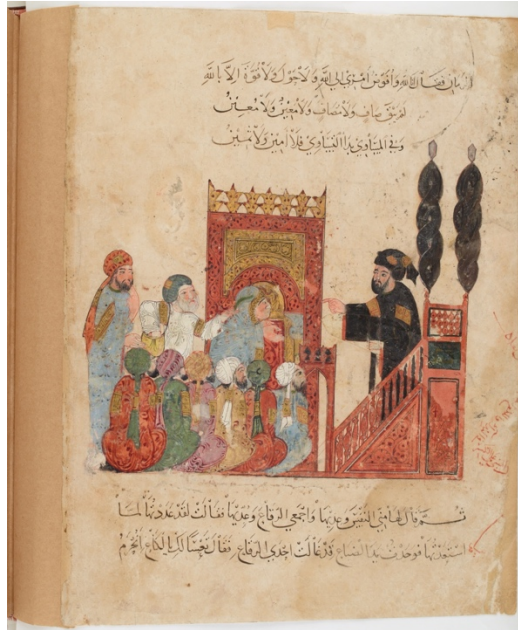 الزمان فقال إنا لله وأفوض أمري إلى الله ولا حول ولا قوة إلا بالله
لم يبق صاف ولا مصاف ولا معين ولا معين
وفي المساوي بدا التساوي فلا أمين ولا ثمين
ثم قال لها مني النفس وعديها واجمعي الرقاع وعديها فقالت لقد عددتها لما
استعدتها فوجدت يد الضياع قد غالت إحدى الرقاع فقال تعسا لك يا لكاع أنحرم